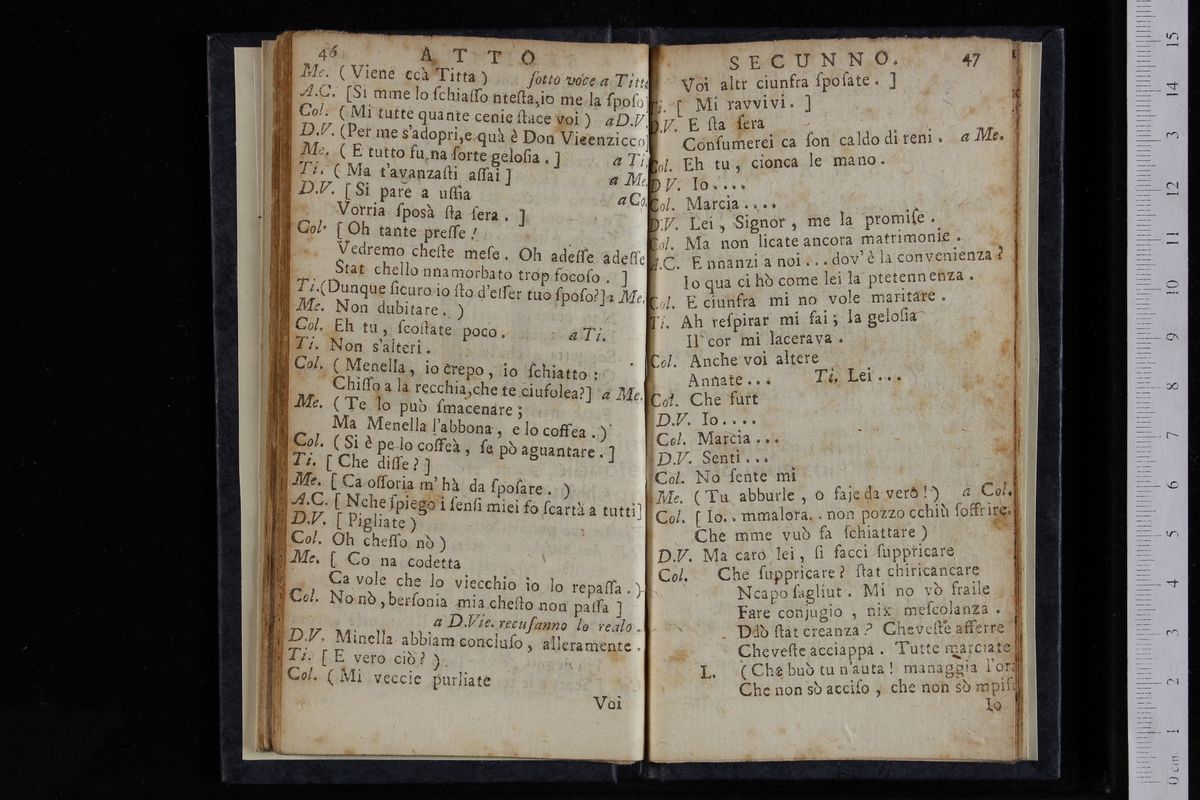 46 ATTO
Me. ( Viene ccà Titta ) ſotto voce a Titt
A.C. [Si mme lo ſchiaffo nteſta,io me la ſpoſo]
Col. ( Mi tutte quante cenie ſtace voi ) a D.V.
D.V. (Per me s'adopri,e quà è Don Vicenzicco]
Me. ( E tutto fu na ſorte geloſia . ] a Ti.
Ti. ( Ma t'avanzaſti aſſai ] a Me.
D.V. [ Si pare a uſſia a Co.
Vorria ſposà ſta ſera . ]
Col. [ Oh tante preſſe !
Vedremo cheſte meſe . Oh adeſſe adeſſe
Stat chello nnamorbato trop focoſo . ]
Ti.(Dunque ſicuro io ſto d'eſſer tuo ſpoſo?] a Me.
Me. Non dubitare . )
Col. Eh tu , ſcoſtate poco . a Ti.
Ti. Non s'alteri .
Col. ( Menella , io crepo , io ſchiatto :
Chiſſo a la recchia,che te ciufolea?] a Me.
Me. ( Te lo può ſmacenare ;
Ma Menella l'abbona , e lo coffea . )
Col. ( Si è pe lo coffeà , ſe pò aguantare . ]
Ti. [ Che diſſe ? ]
Me. [ Ca oſſoria m'hà da ſpoſare . )
A.C. [ Nche ſpiego i ſenſi miei fo ſcartà a tutti]
D.V. [ Pigliate )
Col. Oh cheſſo nò )
Me. [ Co na codetta
Ca vole che lo viecchio io lo repaſſa . )
Col. No nò , berſonia mia cheſto non paſſa ]
a D.Vie. recuſanno lo realo .
D.V. Minella abbiam concluſo , alleramente .
Ti. [ E vero ciò ? )
Col. ( Mi veccie purliate
Voi
SECUNNO. 47
Voi altr ciunfra ſpoſate . ]
Ti. [ Mi ravvivi . ]
D.V. E ſta ſera
Conſumerei ca ſon caldo di reni . a Me.
Col. Eh tu , cionca le mano .
D V. Io . . . .
Col. Marcia . . . .
D.V. Lei , Signor , me la promiſe .
Col. Ma non licate ancora matrimonie .
A.C. E nnanzi a noi . . . dov'è la convenienza ?
Io qua ci hò come lei la ptetennenza .
Col. E ciunfra mi no vole maritare .
Ti. Ah reſpirar mi fai ; la geloſia
Il cor mi lacerava .
Col. Anche voi altere
Annate . . . Ti. Lei . . .
Col. Che furt
D.V. Io . . . .
Col. Marcia . . .
D.V. Senti . . .
Col. No ſente mi
Me. ( Tu abburle , o faje da vero ! ) a Col.
Col. [ Io . . mmalora . . non pozzo cchiù ſoffrire.
Che mme vuò fa ſchiattare )
D.V. Ma caro lei , ſi facci ſuppricare
Col. Che ſuppricare ? ſtat chiricancare
Ncapo ſagliut . Mi no vò fraile
Fare conjugio , nix meſcolanza .
Ddò ſtat creanza ? Cheveſte afferre
Cheveſte acciappa . Tutte marciate
L. ( Che buò tu n'auta ! managgia l'or
Che non sò acciſo , che non sò mpiſ
Io